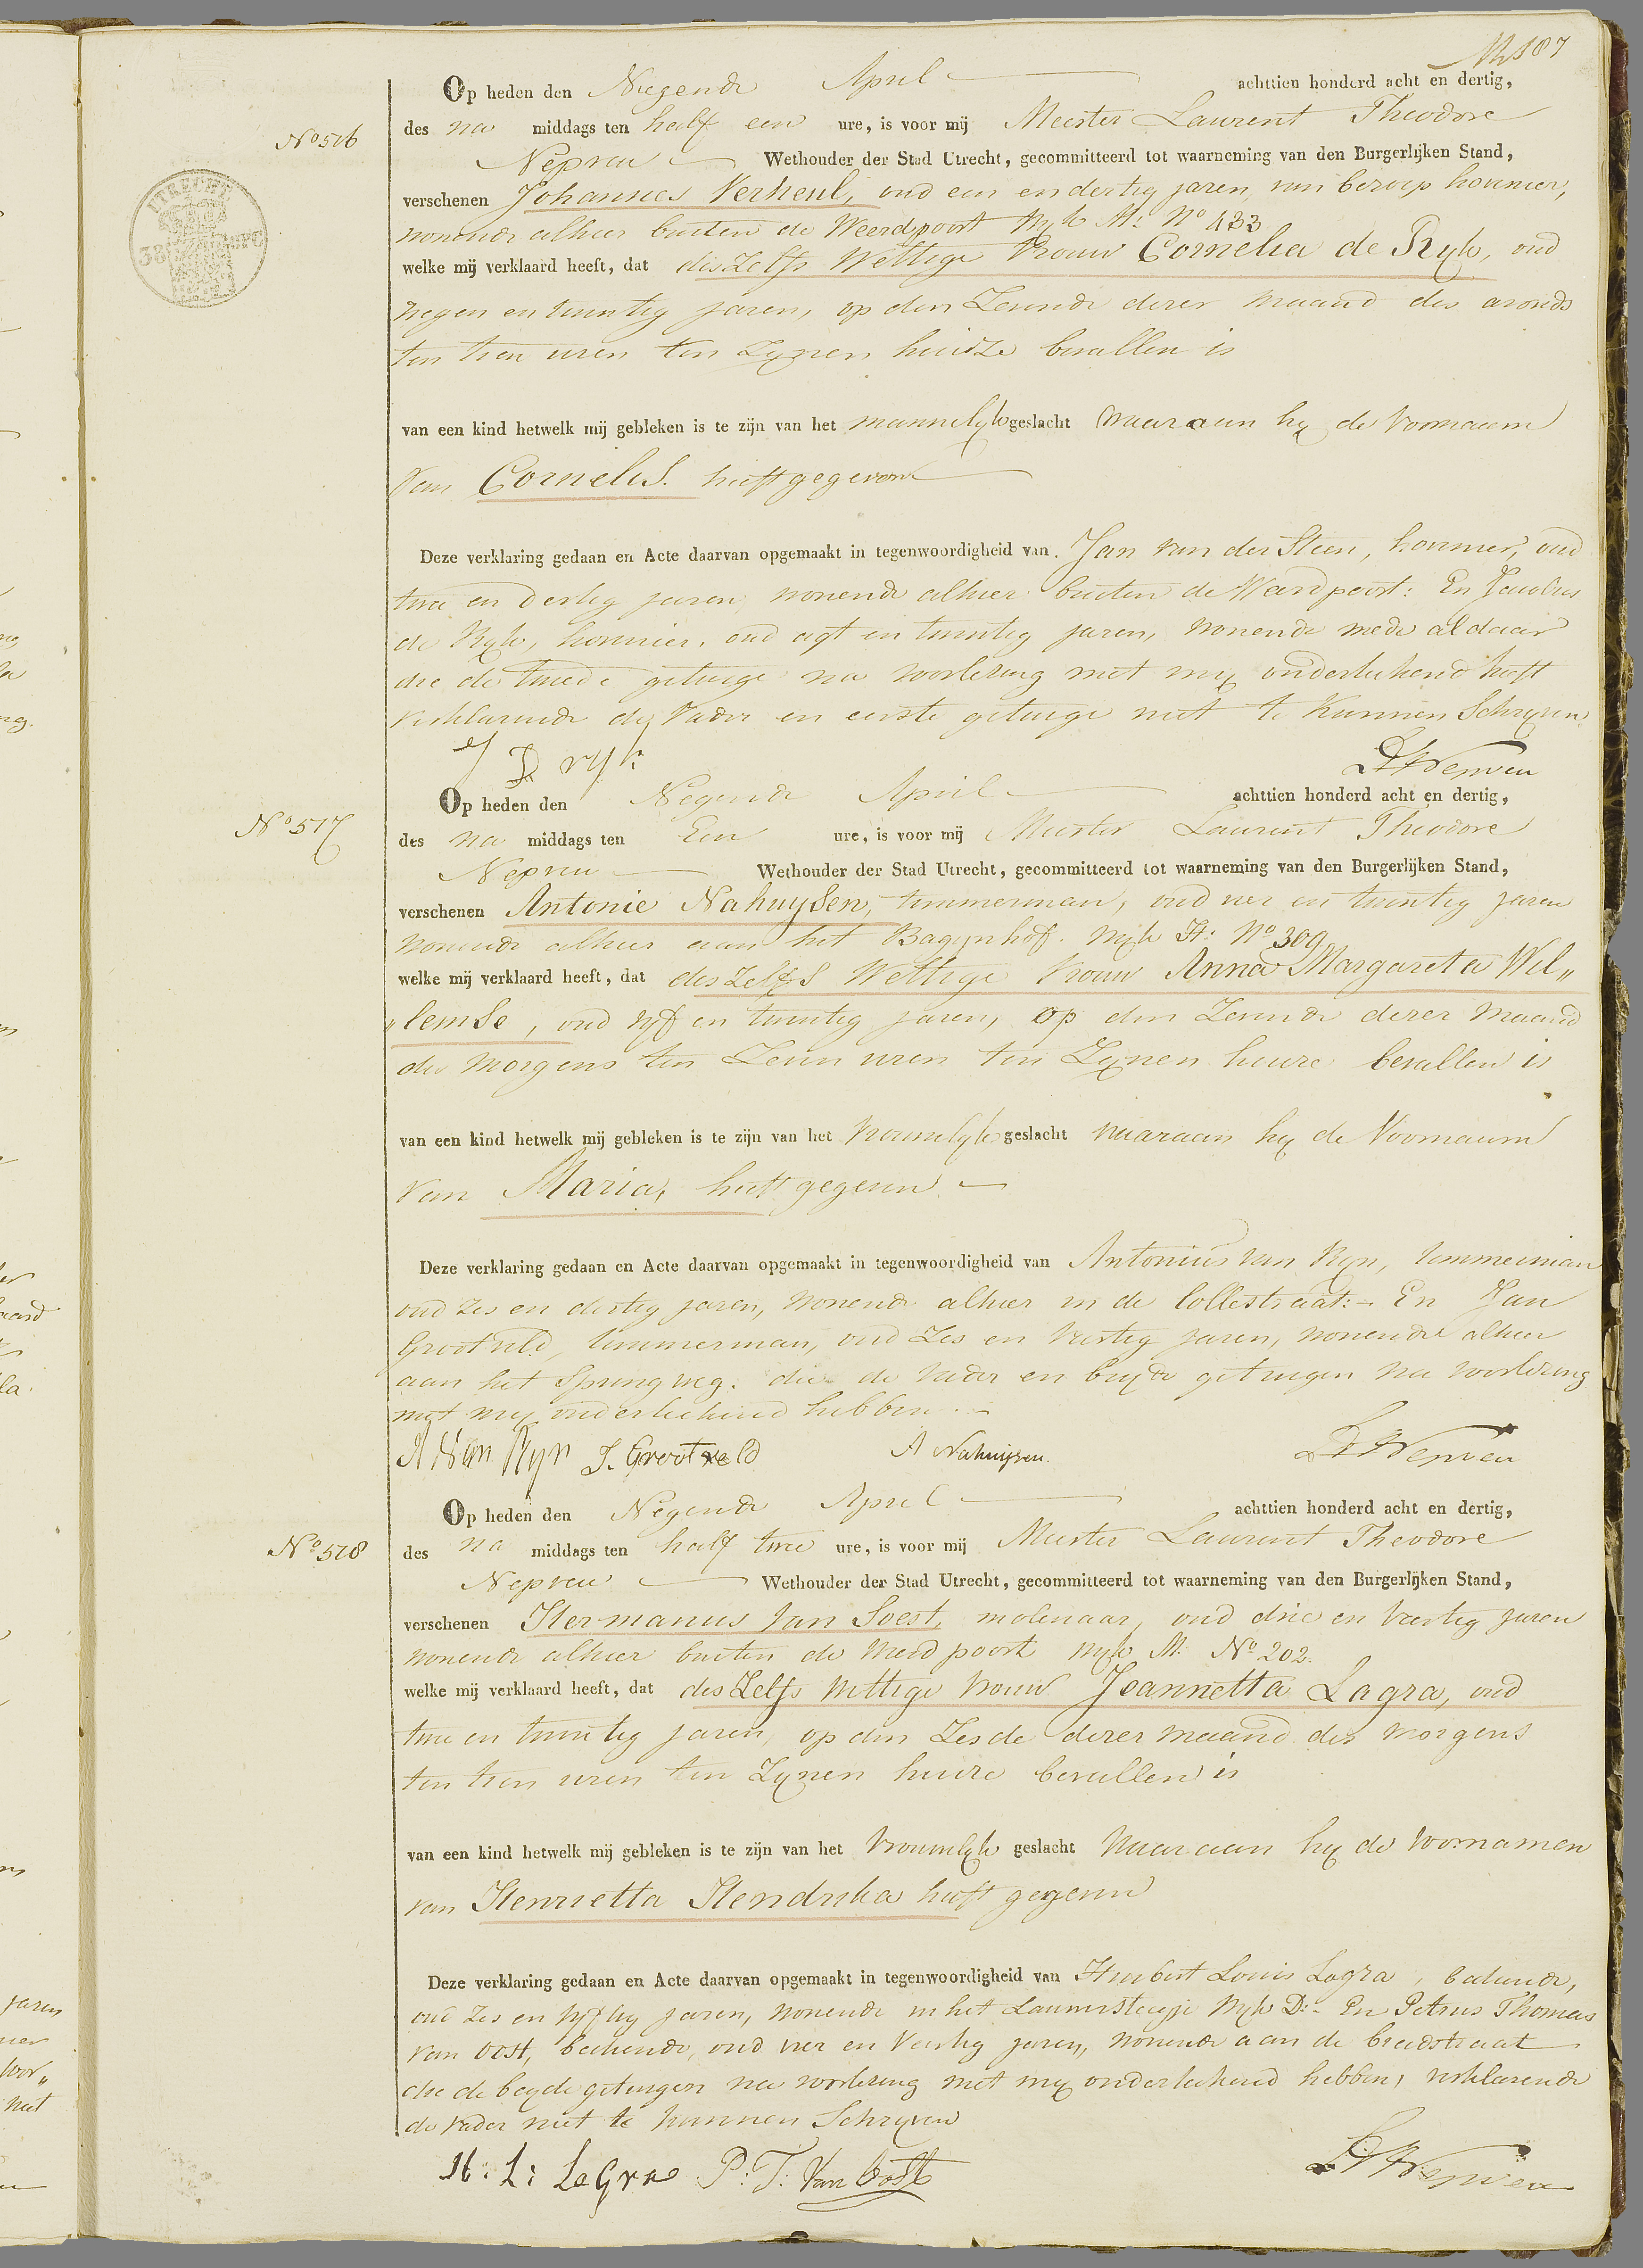 187
Op heden den Negende April achttien honderd acht en dertig,
No 516
des na middags ten half een ure, is voor mij Meester Laurent Theodore
Nepveu Wethouder der Stad Utrecht, gecommitteerd tot waarneming van den Burgerlijken Stand,
UTRECHT
38
verschenen Johannes Verheul, oud een en dertig jaren, van beroep hovenier,
wonende alhier buiten de Weerdpoort Wyk M: No 433
welke mij verklaard heeft, dat deszelfs Wettige Vrouw Cornelia de Ryk, oud
negen en twintig jaren, op den Zevende dezer maand des avonds
ten tien uren ten Zynen huize bevallen is
van een kind hetwelk mij gebleken is te zijn van het mannelyk geslacht waaraan hy de Voornaam
van Cornelis. heeft gegeven
Deze verklaring gedaan en Acte daarvan opgemaakt in tegenwoordigheid van. Jan van der Steen, hovenier, oud
twee en dertig jaren, wonende alhier buiten de Weerdpoort: En Jacobus
de Ryk, hovenier, oud agt en twintig jaren, wonende mede aldaar
die de tweede getuige na voorlezing met my onderteekend heeft
verklarende de Vader en eerste getuige niet te kunnen Schryven.
J D ryk
LTNepveu
Op heden den Negende April achttien honderd acht en dertig,
No 517
des na middags ten Een ure, is voor mij Meester Laurent Theodore
Nepveu Wethouder der Stad Utrecht, gecommitteerd tot waarneming van den Burgerlijken Stand,
verschenen Antonie Nahuysen, timmerman, oud vier en twintig jaren
wonende alhier aan het Bagynhof. Wyk H: No 309
welke mij verklaard heeft, dat deszelfs Wettige Vrouw Anna Margareta Wil„
„lemse, oud vyf en twintig jaren, op den Zevende dezer maand
des morgens ten Zeven uren ten Zynen huize bevallen is
van een kind hetwelk mij gebleken is te zijn van het Vrouwelyk geslacht waaraan hy de Voornaam
van Maria, heeft gegeven
Deze verklaring gedaan en Acte daarvan opgemaakt in tegenwoordigheid van Antonius van Ryn, timmerman
oud Zes en dertig jaren, wonende alhier in de Lollestraat: En Jan
Grootveld, timmerman, oud Zes en Veertig jaren, wonende alhier
aan het Springweg. die de Vader en beyde getuigen na voorlezing
met my onderteekend hebben
A Van Ryn J. Grootveld A Nahuijsen. LTNepveu
Op heden den Negende April achttien honderd acht en dertig,
No 518
des na middags ten half twee ure, is voor mij Meester Laurent Theodore
Nepveu Wethouder der Stad Utrecht, gecommitteerd tot waarneming van den Burgerlijken Stand,
verschenen Hermanus van Soest, molenaar, oud drie en Veertig jaren
wonende alhier buiten de Weerdpoort Wyk M: No 202.
welke mij verklaard heeft, dat deszelfs Wettige Vrouw Jeannetta Lagra, oud
twee en twintig jaren, op den Zesde dezer maand des morgens
ten tien uren ten Zynen huize bevallen is
van een kind hetwelk mij gebleken is te zijn van het Vrouwelyk geslacht Waaraan hy de Voornamen
van Henrietta Hendrika heeft gegeven
Deze verklaring gedaan en Acte daarvan opgemaakt in tegenwoordigheid van Huibert Louis Lagra, bediende,
oud Zes en vyftig jaren, wonende in het Lauwersteegje Wyk D: En Petrus Thomas
van Oost, bediende, oud vier en Veertig jaren, wonende aan de breedstraat
die de beyde getuigen na voorlezing met my onderteekend hebben, verklarende
de Vader niet te kunnen Schryven
H: L: LaGra P: T: Van Oost LTNepveu